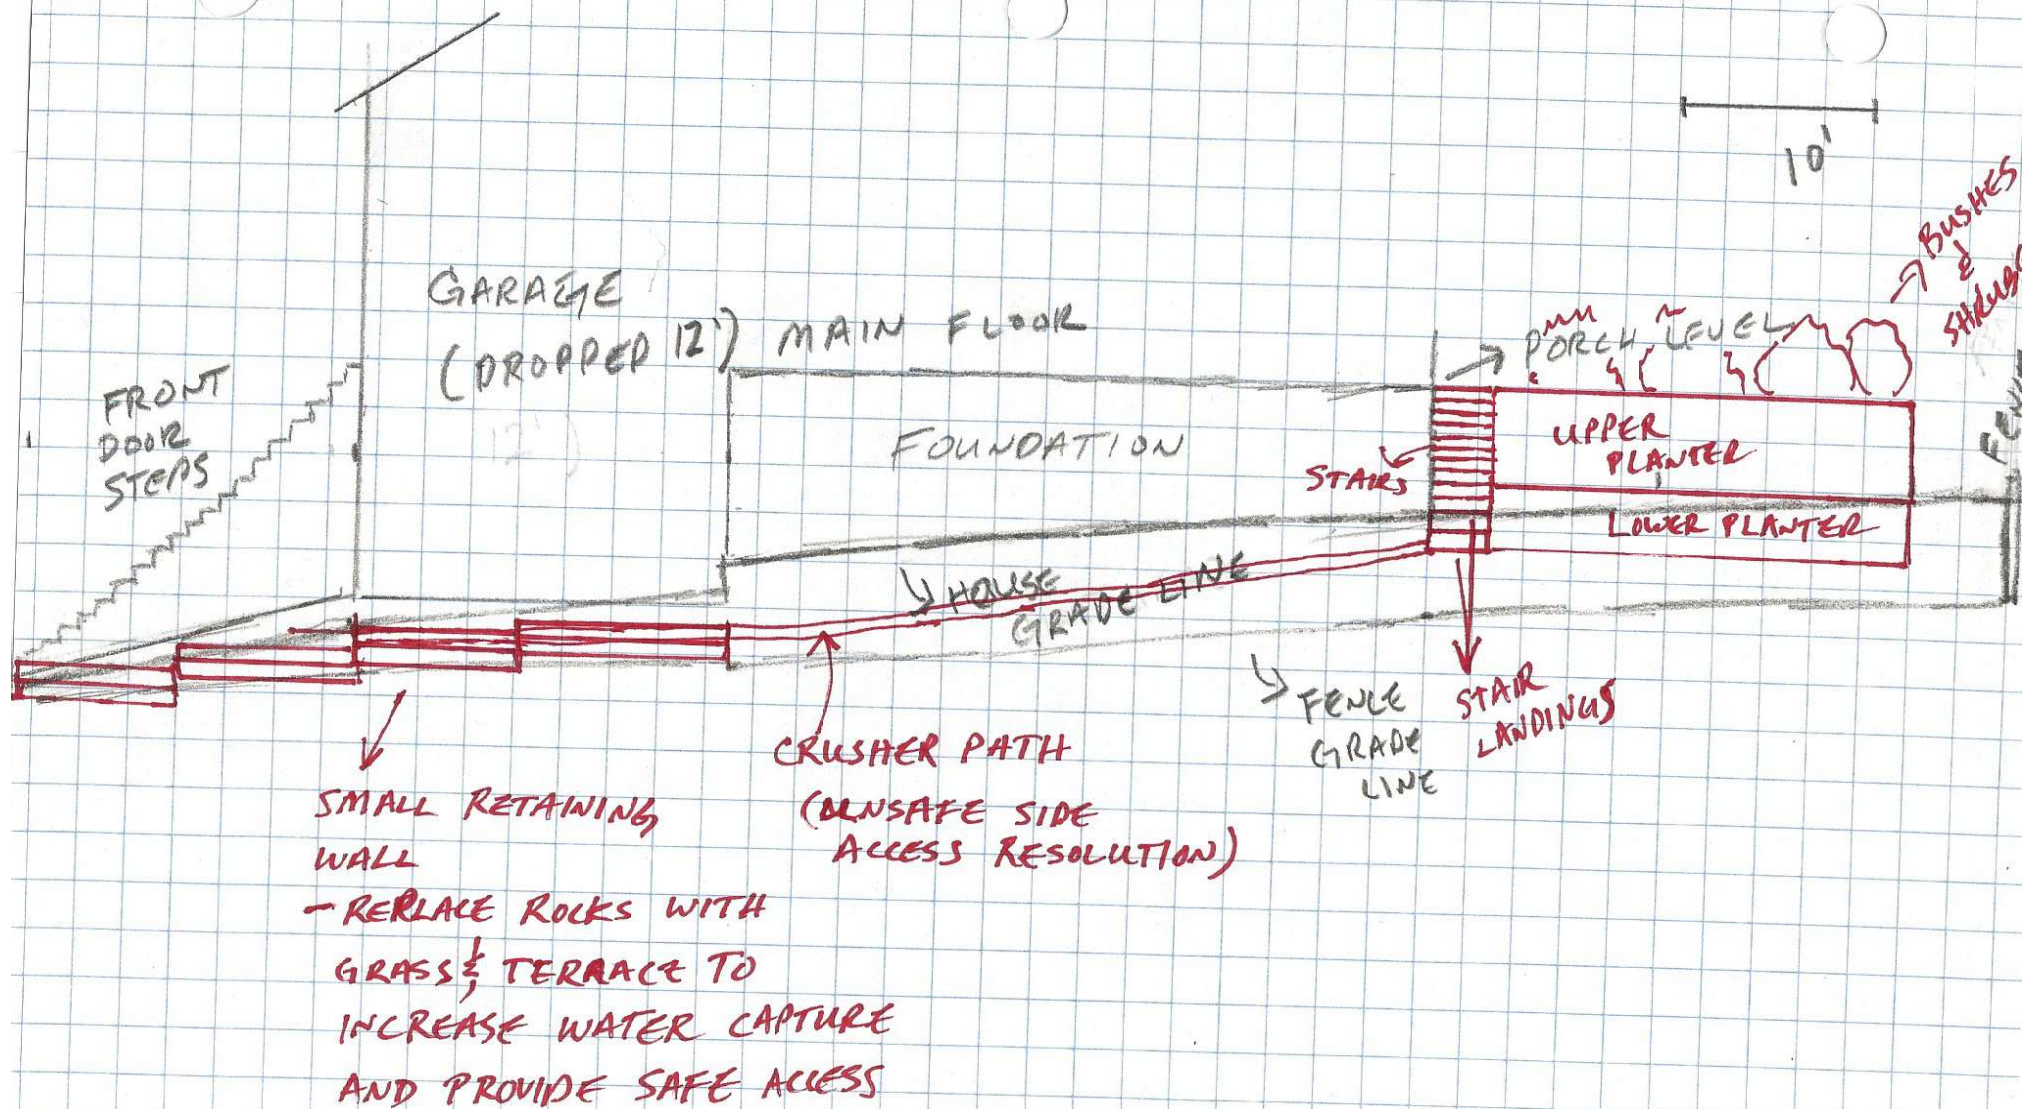 10'
BUSHES
&
GARAGE
(DROPPED 12')
MAIN FLOOR
PORCH LEVEL
FRONT
DOOR
STEPS
12')
FOUNDATION
STAIRS
UPPER
PLANTER
LOWER PLANTER
HOUSE
GRADE LINE
FENCE
GRADE
LINE
STAIR
LANDINGS
CRUSHER PATH
(UNSAFE SIDE
ACCESS RESOLUTION)
SMALL RETAINING
WALL
- REPLACE ROCKS WITH
GRASS & TERRACE TO
INCREASE WATER CAPTURE
AND PROVIDE SAFE ACCESS